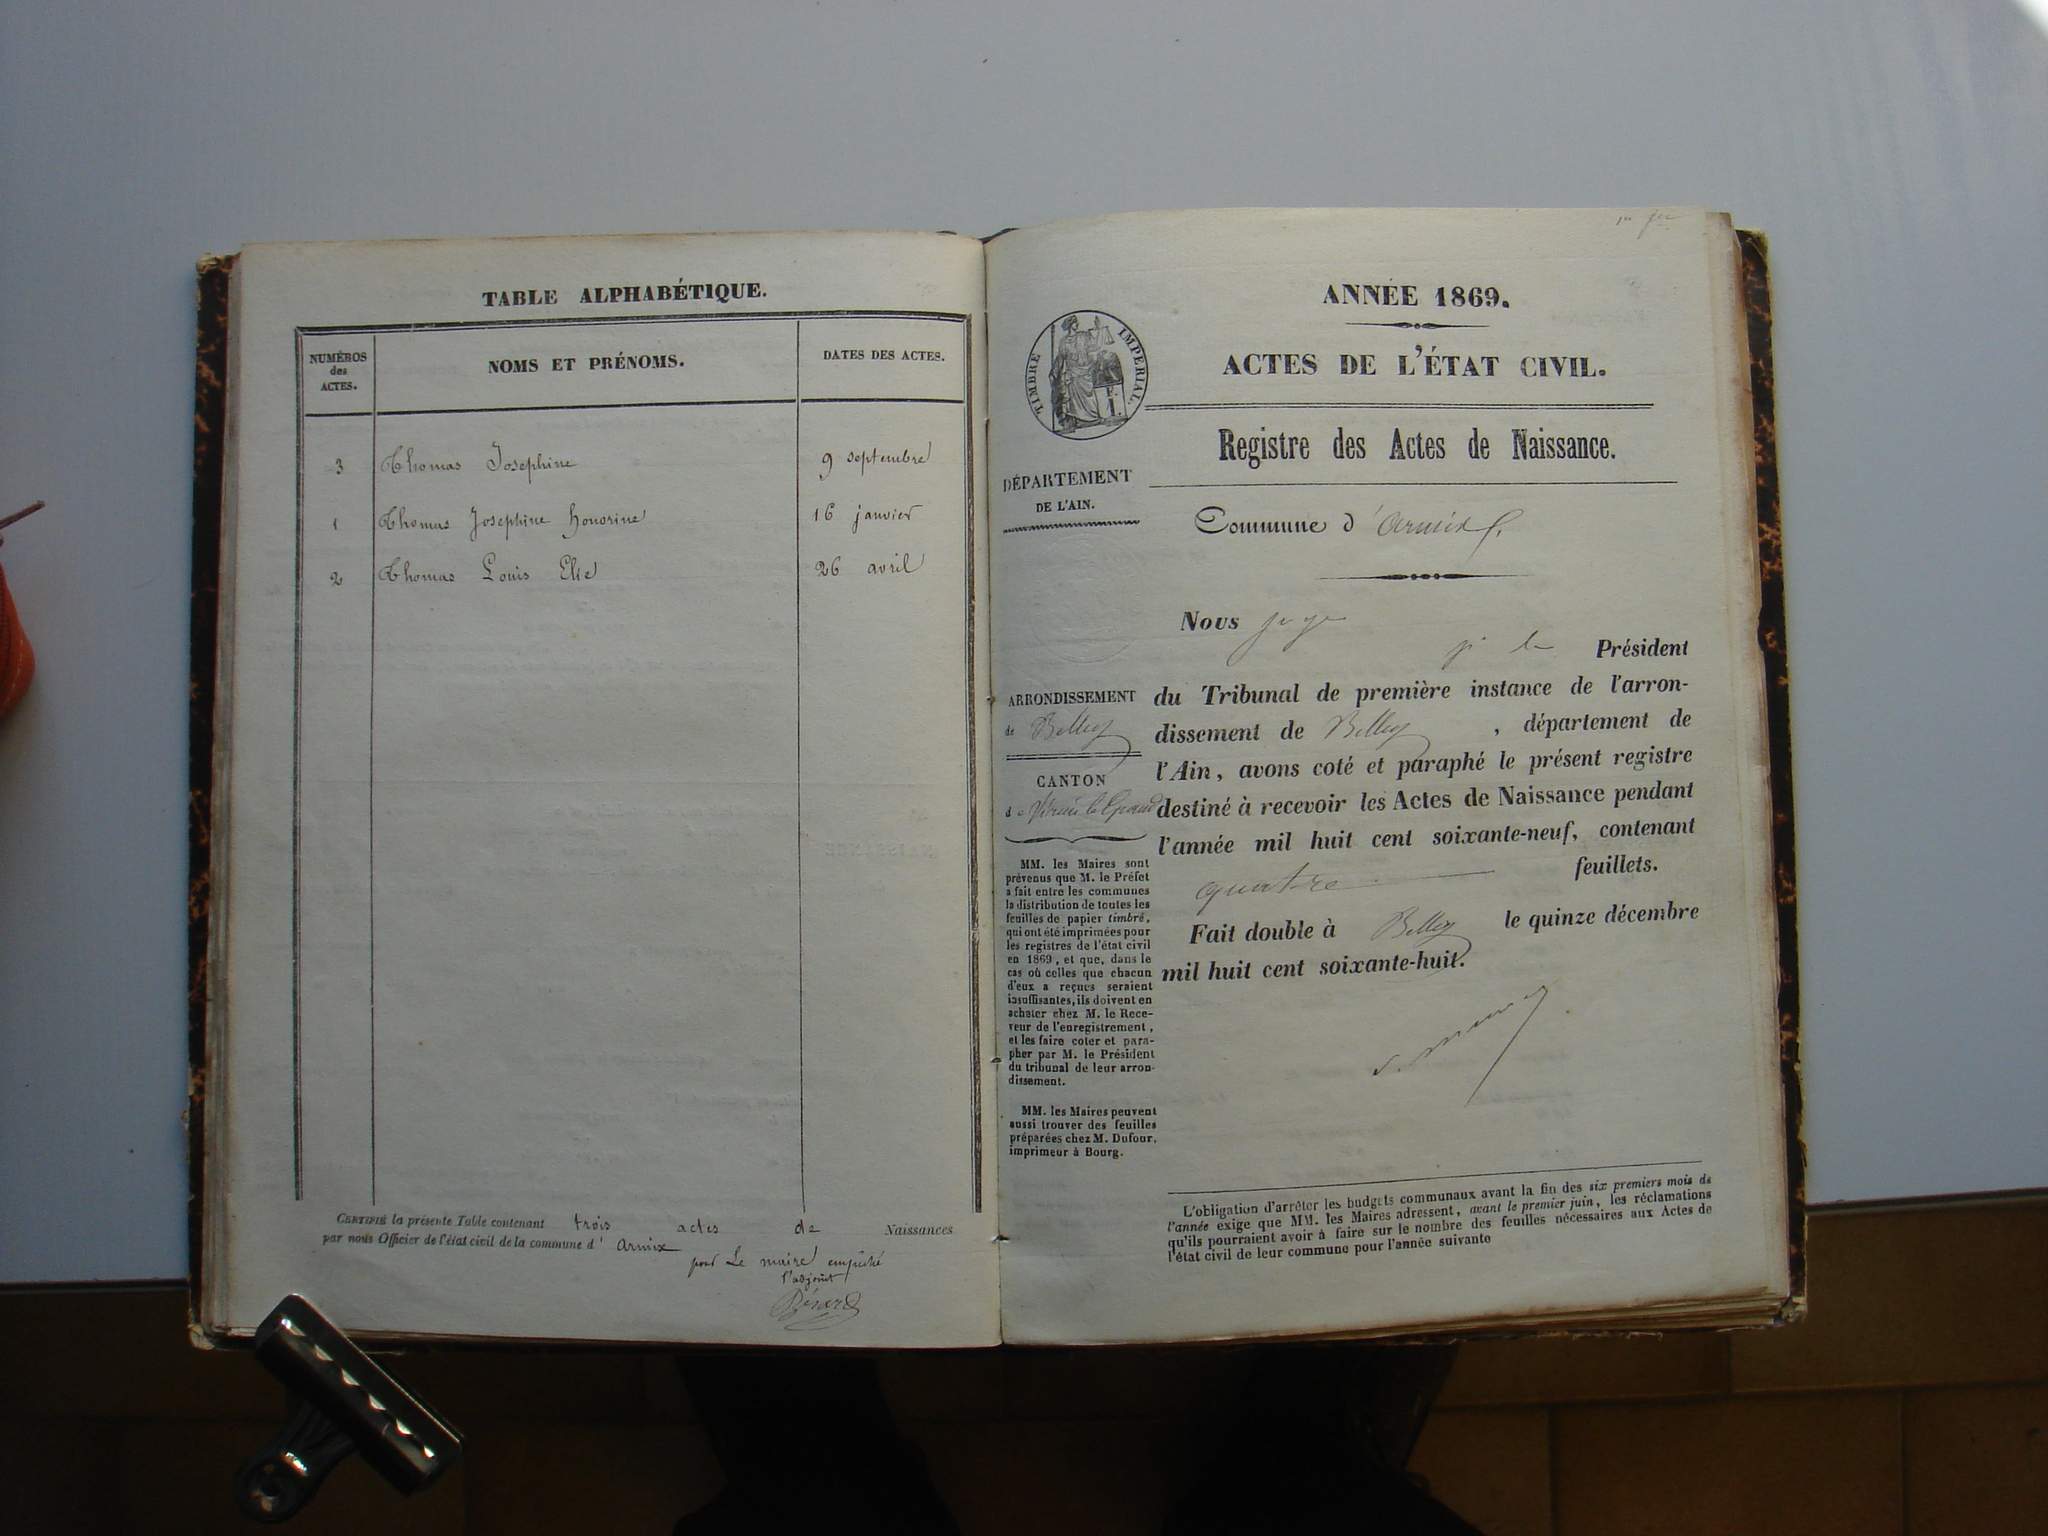 TABLE ALPHABÉTIQUE.
NUMÉROS
des
ACTES.
NOMS ET PRÉNOMS.
DATES DES ACTES.
3 Thomas Josephine 9 septembre
1 Thomas Josephine honorine 16 janvier
2 Thomas Louis Elie 26 avril
CERTIFIÉ la présente Table contenant trois actes de Naissances
par nous Officier de l'état civil de la commune d' armix
pour Le maire empêché
l'adjoint
Bérard
ANNÉE 1869.
ACTES DE L'ÉTAT CIVIL.
TIMBRE IMPERIAL.
Registre des Actes de Naissance.
DÉPARTEMENT
DE L'AIN.
Commune d'armix
ARRONDISSEMENT
de Belley
CANTON
de Virieu le Grand
MM. les Maires sont
prévenus que M. le Préfet
a fait entre les communes
la distribution de toutes les
feuilles de papier timbré,
qui ont été imprimées pour
les registres de l'état civil
en 1869, et que, dans le
cas où celles que chacun
d'eux a reçues seraient
insuffisantes, ils doivent en
acheter chez M. le Rece-
veur de l'enregistrement,
et les faire coter et para-
pher par M. le Président
du tribunal de leur arron-
dissement.
MM. les Maires peuvent
aussi trouver des feuilles
préparées chez M. Dufour,
imprimeur à Bourg.
Nous juge
pr le Président
du Tribunal de première instance de l'arron-
dissement de Belley, département de
l'Ain, avons coté et paraphé le présent registre
destiné à recevoir les Actes de Naissance pendant
l'année mil huit cent soixante-neuf, contenant
quatre feuillets.
Fait double à Belley le quinze décembre
mil huit cent soixante-huit.
L'obligation d'arrêter les budgets communaux avant la fin des six premiers mois de
l'année exige que MM. les Maires adressent, avant le premier juin, les réclamations
qu'ils pourraient avoir à faire sur le nombre des feuilles nécessaires aux Actes de
l'état civil de leur commune pour l'année suivante